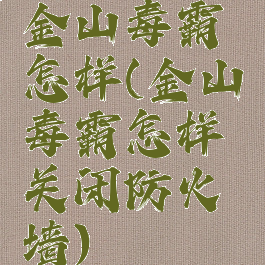 金山毒霸
怎样(金山
毒霸怎样
关闭防火
墙)